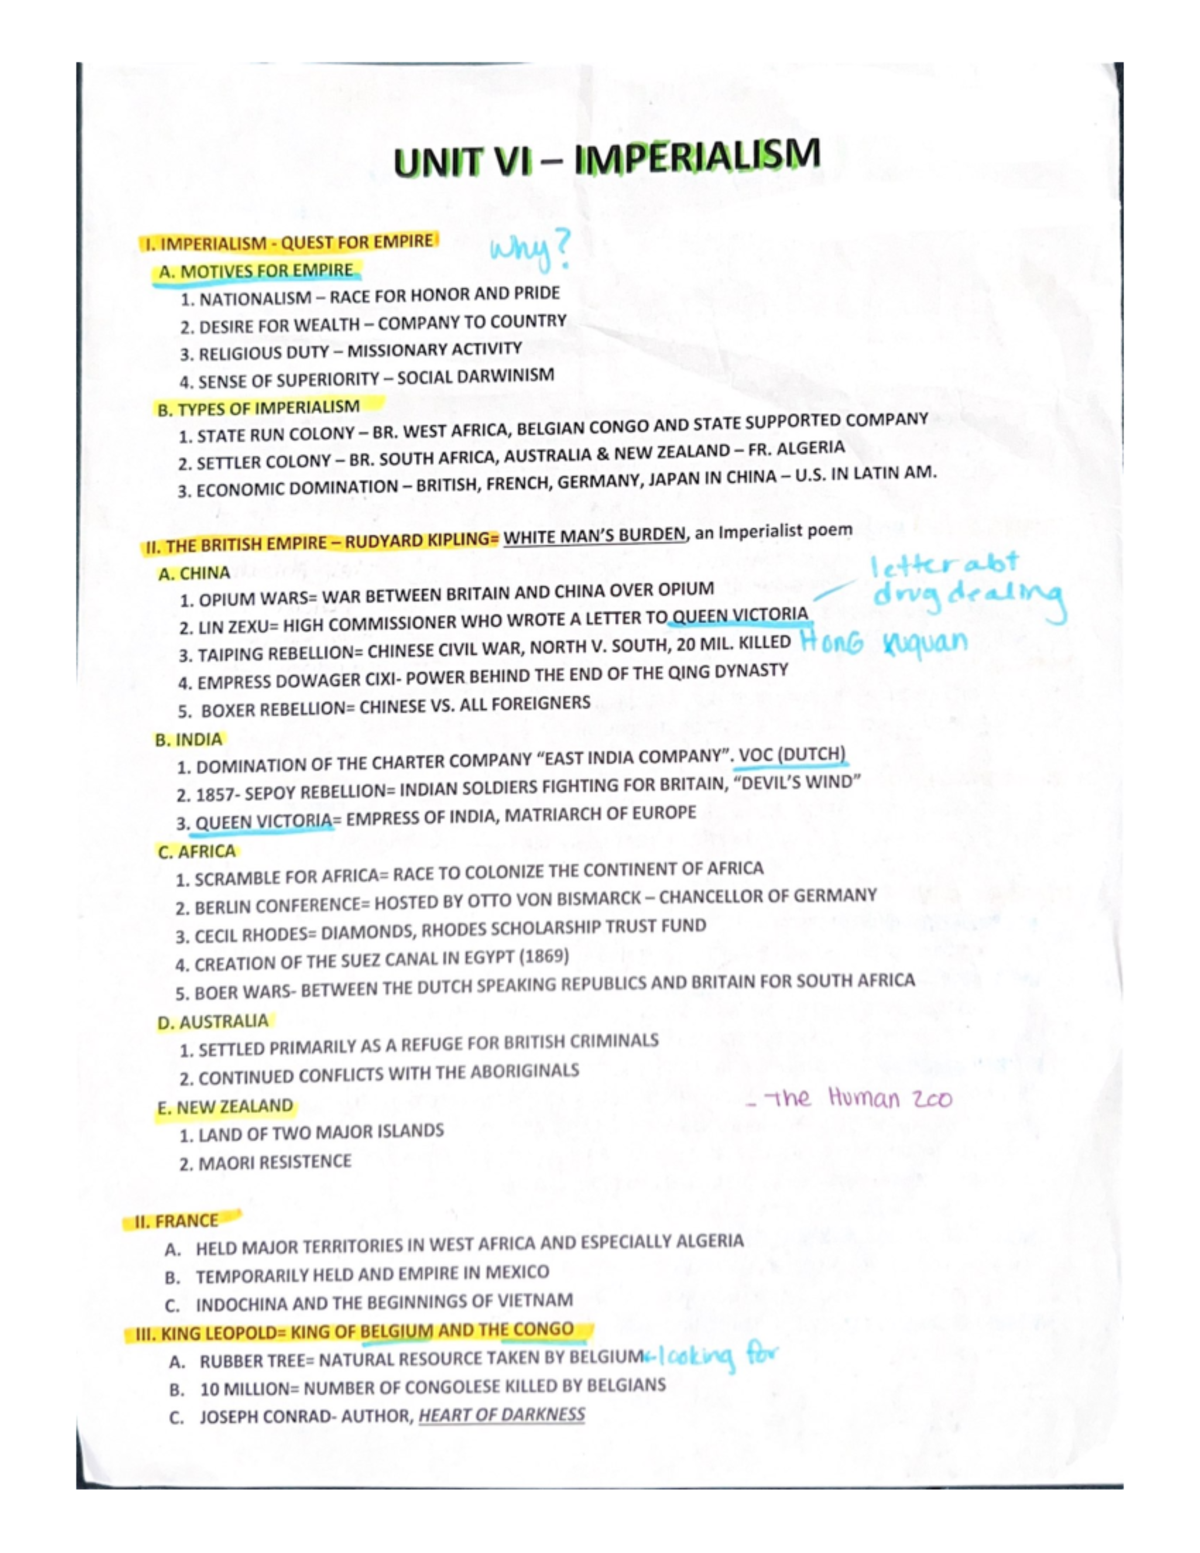 UNIT VI – IMPERIALISM
I. IMPERIALISM - QUEST FOR EMPIRE why?
A. MOTIVES FOR EMPIRE
1. NATIONALISM – RACE FOR HONOR AND PRIDE
2. DESIRE FOR WEALTH – COMPANY TO COUNTRY
3. RELIGIOUS DUTY – MISSIONARY ACTIVITY
4. SENSE OF SUPERIORITY – SOCIAL DARWINISM
B. TYPES OF IMPERIALISM
1. STATE RUN COLONY – BR. WEST AFRICA, BELGIAN CONGO AND STATE SUPPORTED COMPANY
2. SETTLER COLONY – BR. SOUTH AFRICA, AUSTRALIA & NEW ZEALAND – FR. ALGERIA
3. ECONOMIC DOMINATION – BRITISH, FRENCH, GERMANY, JAPAN IN CHINA – U.S. IN LATIN AM.
II. THE BRITISH EMPIRE – RUDYARD KIPLING= WHITE MAN'S BURDEN, an Imperialist poem
A. CHINA
letter abt
drug dealing
1. OPIUM WARS= WAR BETWEEN BRITAIN AND CHINA OVER OPIUM
2. LIN ZEXU= HIGH COMMISSIONER WHO WROTE A LETTER TO QUEEN VICTORIA
3. TAIPING REBELLION= CHINESE CIVIL WAR, NORTH V. SOUTH, 20 MIL. KILLED HonG xuquan
4. EMPRESS DOWAGER CIXI- POWER BEHIND THE END OF THE QING DYNASTY
5. BOXER REBELLION= CHINESE VS. ALL FOREIGNERS
B. INDIA
1. DOMINATION OF THE CHARTER COMPANY “EAST INDIA COMPANY”. VOC (DUTCH)
2. 1857- SEPOY REBELLION= INDIAN SOLDIERS FIGHTING FOR BRITAIN, “DEVIL'S WIND”
3. QUEEN VICTORIA= EMPRESS OF INDIA, MATRIARCH OF EUROPE
C. AFRICA
1. SCRAMBLE FOR AFRICA= RACE TO COLONIZE THE CONTINENT OF AFRICA
2. BERLIN CONFERENCE= HOSTED BY OTTO VON BISMARCK – CHANCELLOR OF GERMANY
3. CECIL RHODES= DIAMONDS, RHODES SCHOLARSHIP TRUST FUND
4. CREATION OF THE SUEZ CANAL IN EGYPT (1869)
5. BOER WARS- BETWEEN THE DUTCH SPEAKING REPUBLICS AND BRITAIN FOR SOUTH AFRICA
D. AUSTRALIA
1. SETTLED PRIMARILY AS A REFUGE FOR BRITISH CRIMINALS
2. CONTINUED CONFLICTS WITH THE ABORIGINALS
E. NEW ZEALAND
- The Human Zoo
1. LAND OF TWO MAJOR ISLANDS
2. MAORI RESISTENCE
II. FRANCE
A. HELD MAJOR TERRITORIES IN WEST AFRICA AND ESPECIALLY ALGERIA
B. TEMPORARILY HELD AND EMPIRE IN MEXICO
C. INDOCHINA AND THE BEGINNINGS OF VIETNAM
III. KING LEOPOLD= KING OF BELGIUM AND THE CONGO
A. RUBBER TREE= NATURAL RESOURCE TAKEN BY BELGIUM looking for
B. 10 MILLION= NUMBER OF CONGOLESE KILLED BY BELGIANS
C. JOSEPH CONRAD- AUTHOR, HEART OF DARKNESS